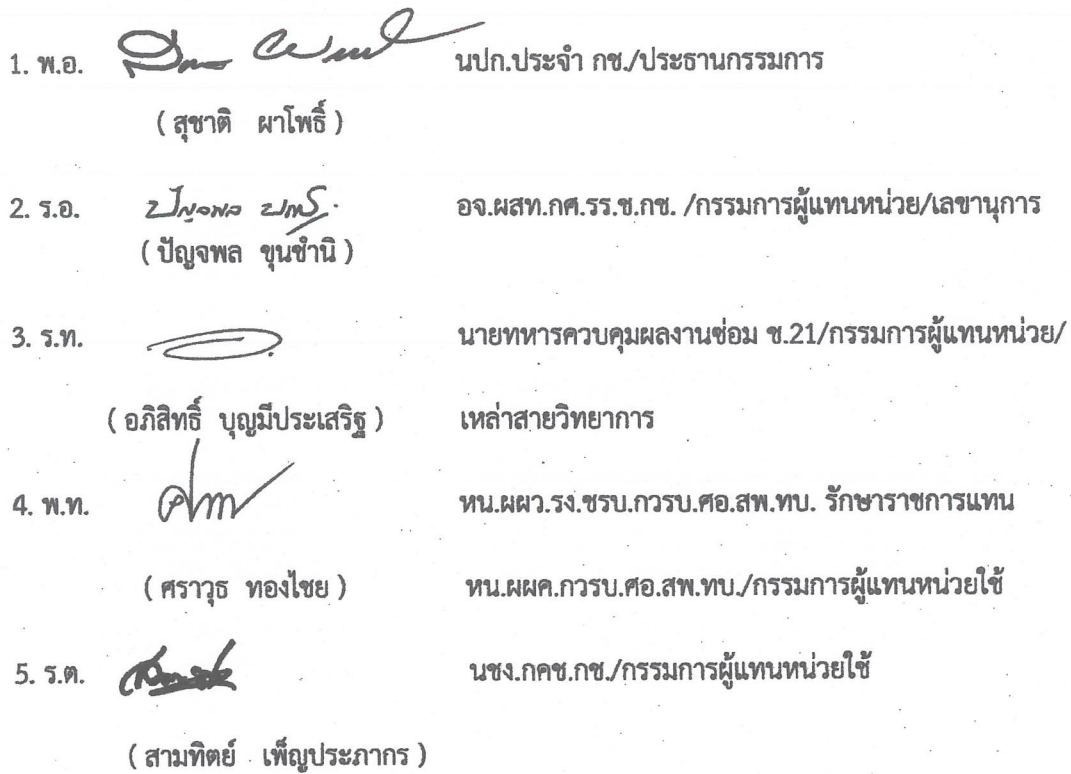 1. พ.อ. นปก.ประจำ กช./ประธานกรรมการ
( สุชาติ ผาโพธิ์ )
2. ร.อ. อจ.ผสท.กศ.รร.ช.กช. /กรรมการผู้แทนหน่วย/เลขานุการ
( ปัญจพล ขุนชำนิ )
3. ร.ท. นายทหารควบคุมผลงานซ่อม ช.21/กรรมการผู้แทนหน่วย/
( อภิสิทธิ์ บุญมีประเสริฐ ) เหล่าสายวิทยาการ
4. พ.ท. หน.ผผว.รง.ซรบ.กวรบ.ศอ.สพ.ทบ. รักษาราชการแทน
( ศราวุธ ทองไชย ) หน.ผผค.กวรบ.ศอ.สพ.ทบ./กรรมการผู้แทนหน่วยใช้
5. ร.ต. นชง.กคช.กช./กรรมการผู้แทนหน่วยใช้
( สามทิตย์ เพ็ญประภากร )